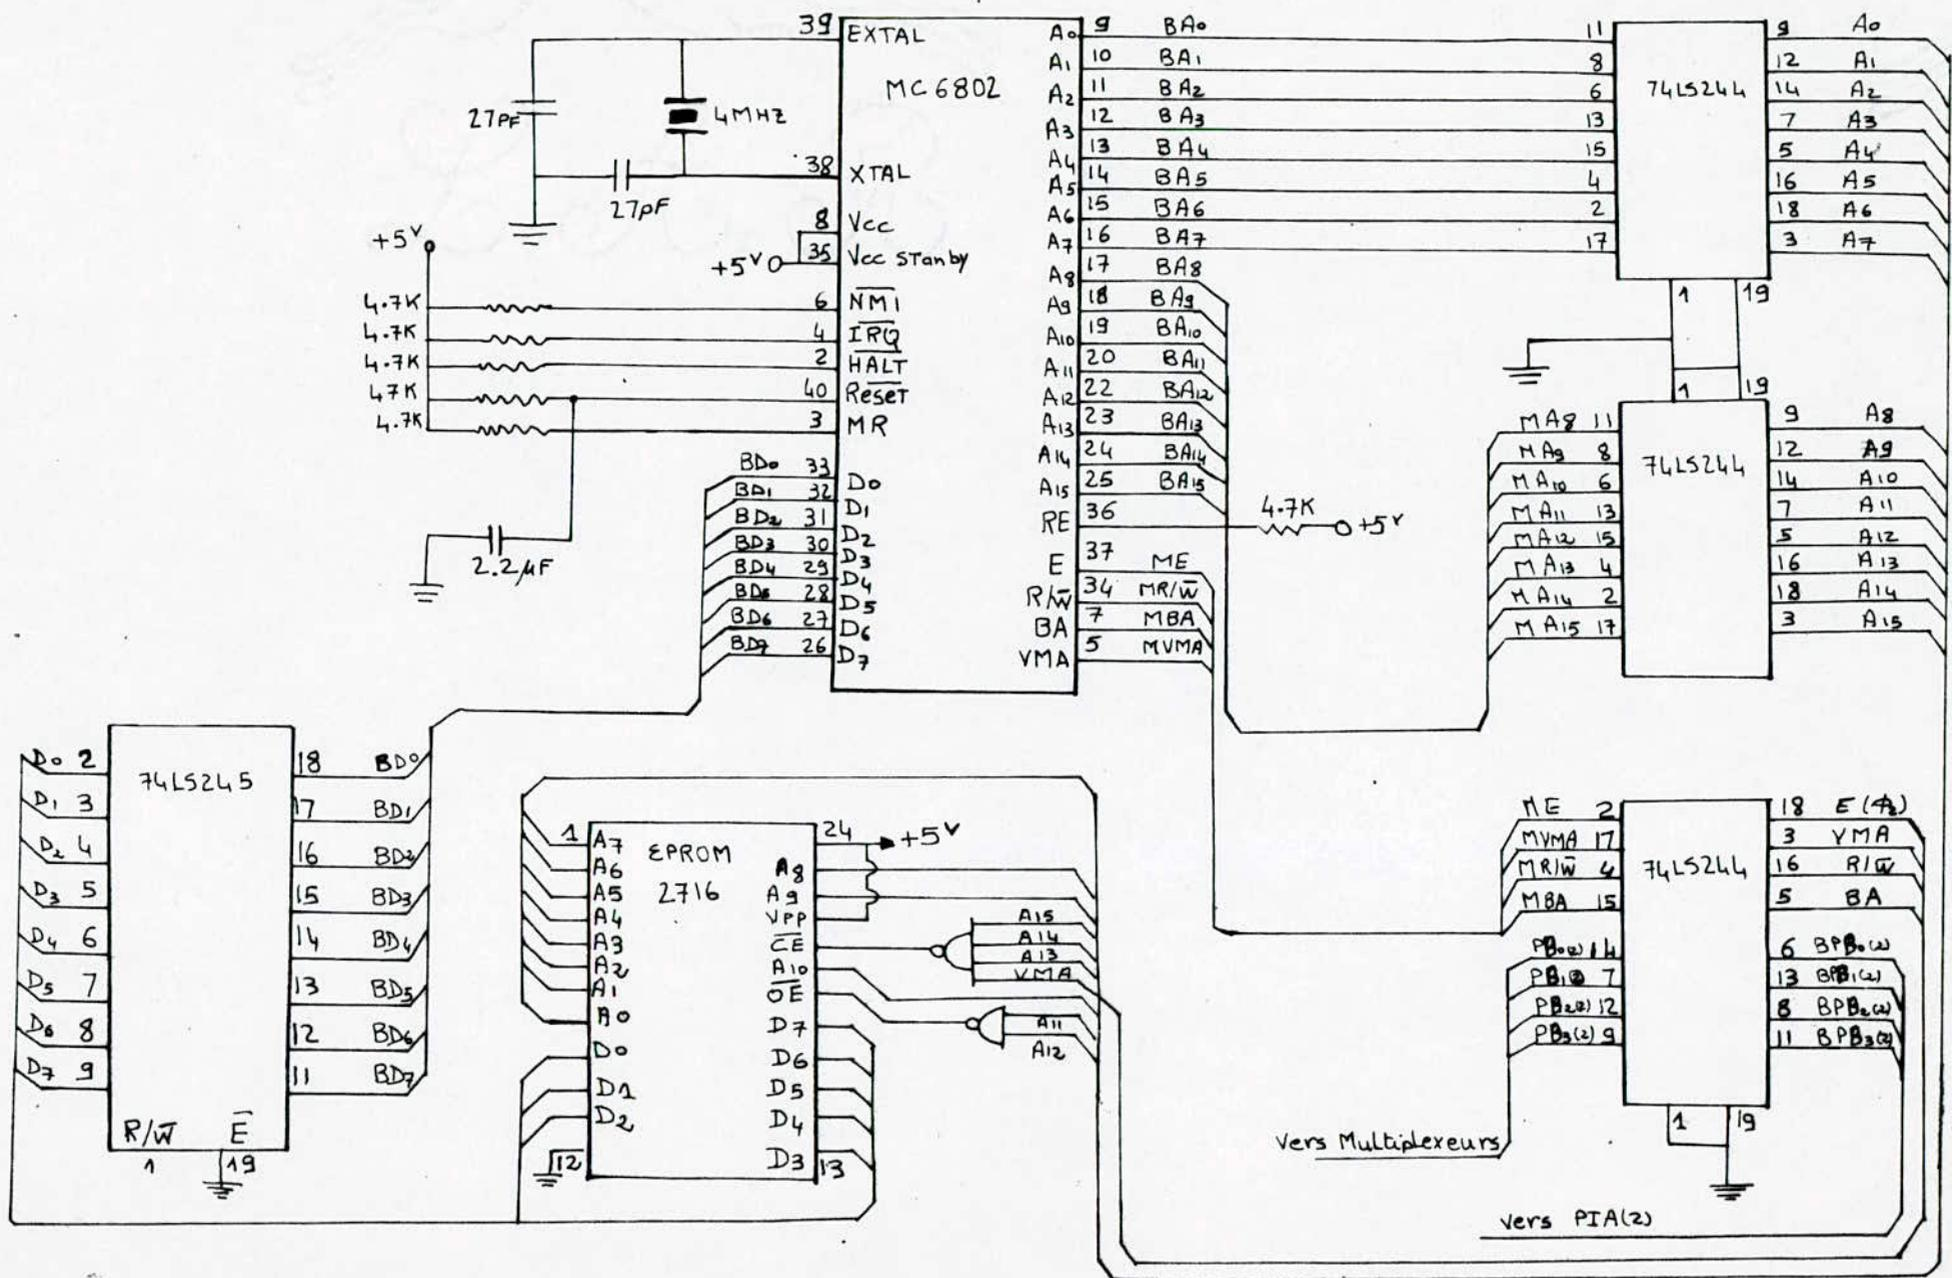 39 EXTAL
MC6802
27PF
4MHZ
38 XTAL
27pF
8 Vcc
35 Vcc Stanby
+5V
+5V
4.7K 6 NMI
4.7K 4 IRQ
4.7K 2 HALT
47K 40 Reset
4.7K 3 MR
2.2µF
BD0 33 D0
BD1 32 D1
BD2 31 D2
BD3 30 D3
BD4 29 D4
BD5 28 D5
BD6 27 D6
BD7 26 D7
A0 9 BA0
A1 10 BA1
A2 11 BA2
A3 12 BA3
A4 13 BA4
A5 14 BA5
A6 15 BA6
A7 16 BA7
A8 17 BA8
A9 18 BA9
A10 19 BA10
A11 20 BA11
A12 22 BA12
A13 23 BA13
A14 24 BA14
A15 25 BA15
RE 36
4.7K
+5V
E 37 ME
R/W̅ 34 MR/W̅
BA 7 MBA
VMA 5 MVMA
74LS244
11 9 A0
8 12 A1
6 14 A2
13 7 A3
15 5 A4
4 16 A5
2 18 A6
17 3 A7
1 19
1 19
74LS244
MA8 11 9 A8
MA9 8 12 A9
MA10 6 14 A10
MA11 13 7 A11
MA12 15 5 A12
MA13 4 16 A13
MA14 2 18 A14
MA15 17 3 A15
74LS245
D0 2 18 BD0
D1 3 17 BD1
D2 4 16 BD2
D3 5 15 BD3
D4 6 14 BD4
D5 7 13 BD5
D6 8 12 BD6
D7 9 11 BD7
R/W̅ E̅
1 19
EPROM
2716
1 A7
A6
A5
A4
A3
A2
A1
A0
D0
D1
D2
12
24 +5V
A8
A9
VPP
C̅E̅
A10
O̅E̅
D7
D6
D5
D4
D3 13
A15
A14
A13
VMA
A11
A12
74LS244
ME 2 18 E(ϕ2)
MVMA 17 3 VMA
MR/W̅ 4 16 R/W̅
MBA 15 5 BA
PB0(2) 14 6 BPB0(2)
PB1(2) 7 13 BPB1(2)
PB2(2) 12 8 BPB2(2)
PB3(2) 9 11 BPB3(2)
1 19
Vers Multiplexeurs
vers PIA(2)